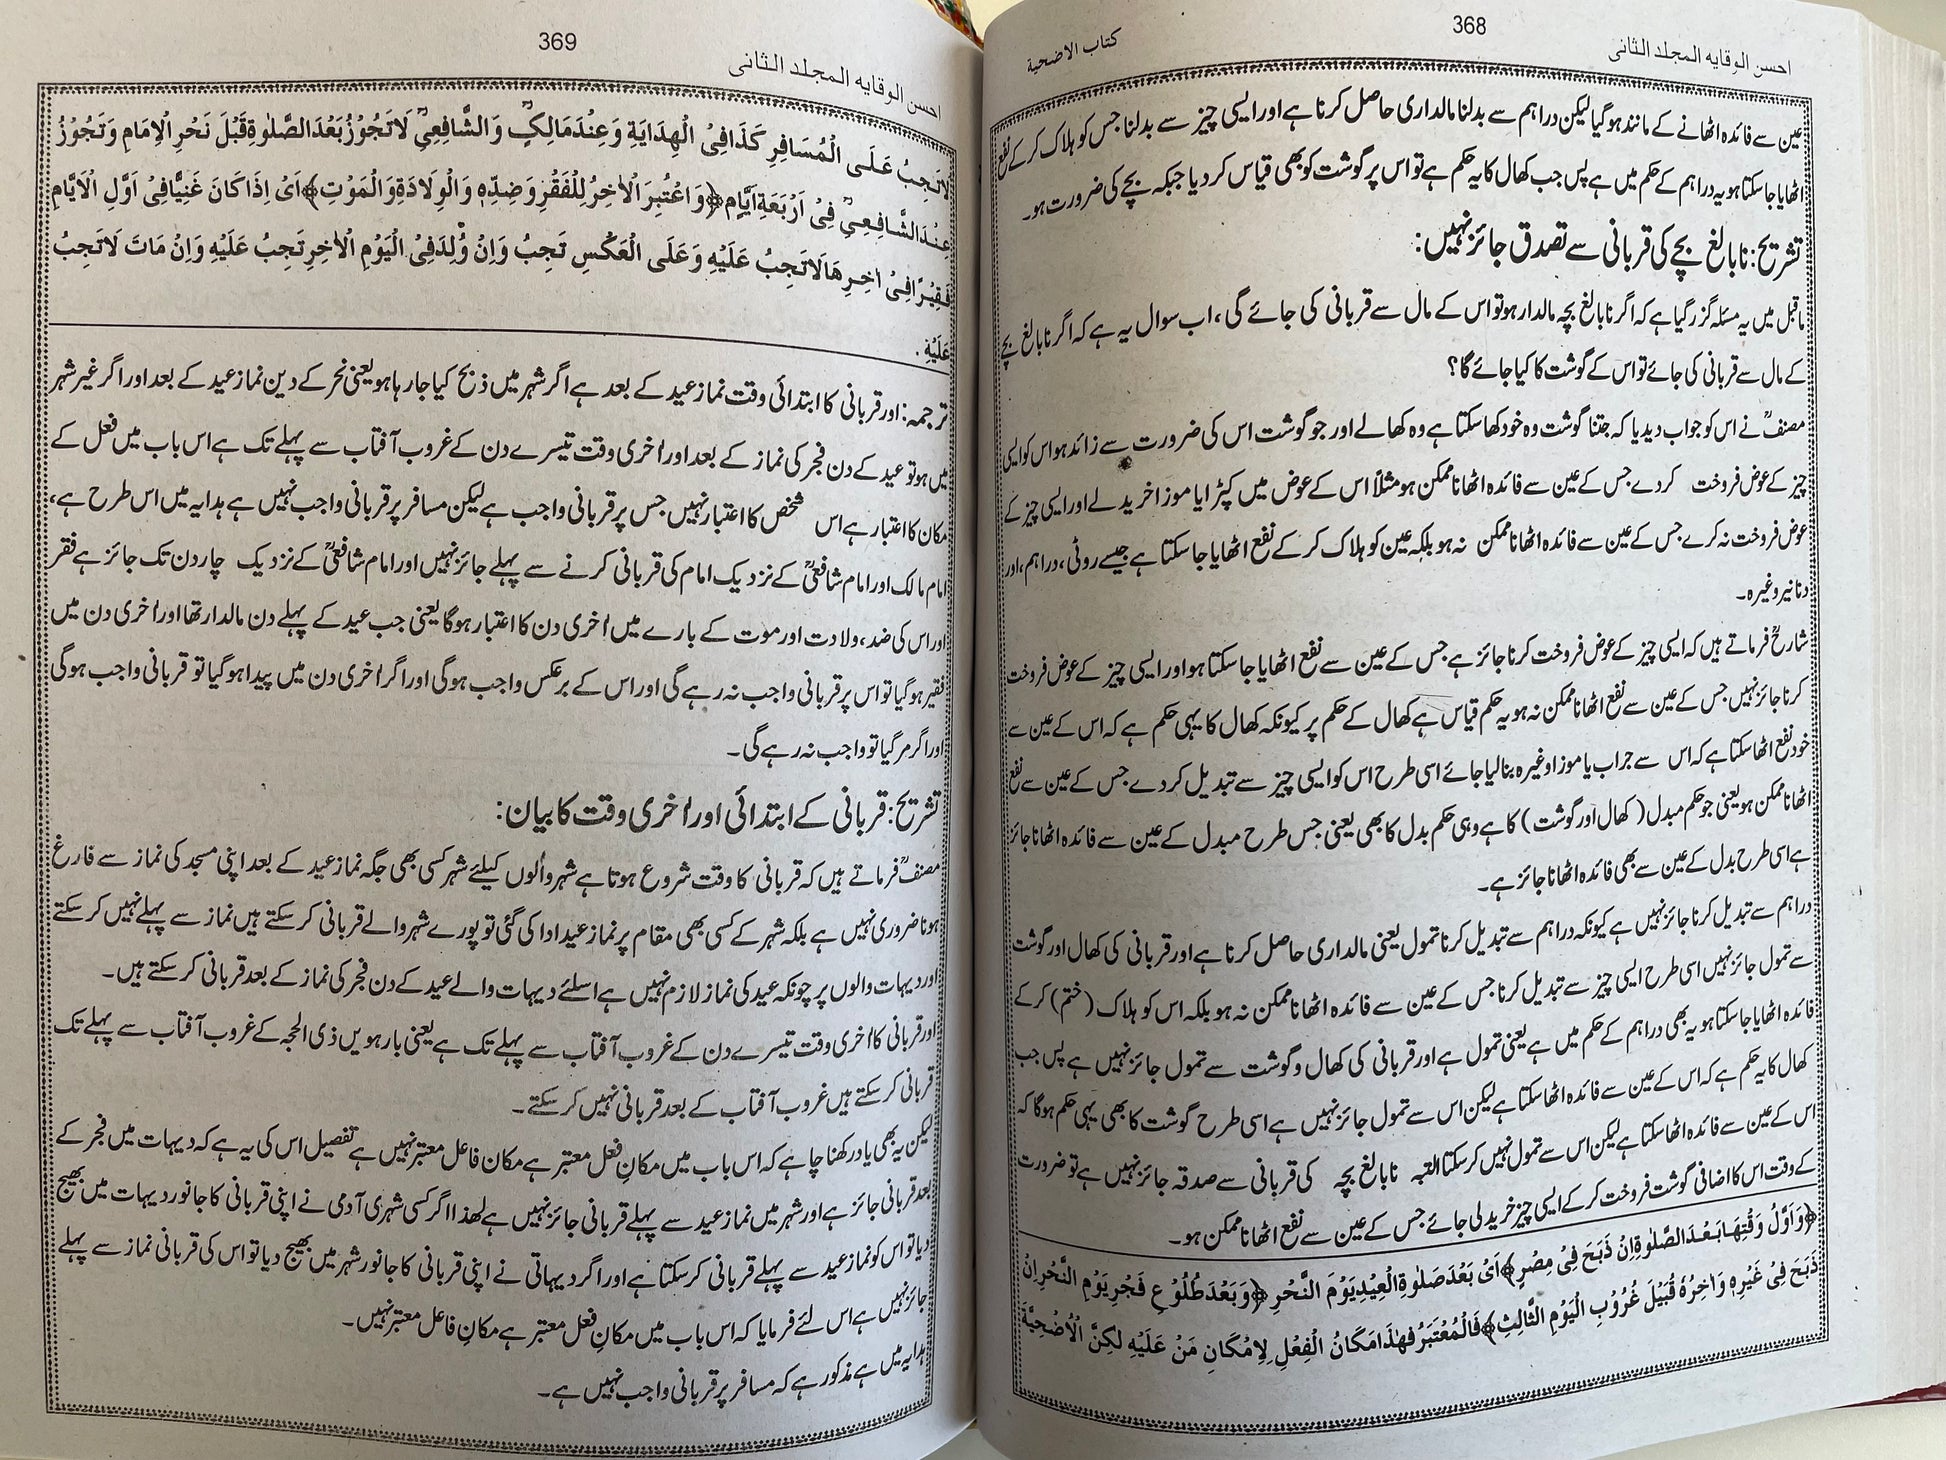 احسن الوقایه المجلد الثانی
368
کتاب الاضحیة
عین سے فائدہ اٹھانے کے مانند ہوگیا لیکن دراہم سے بدلنا مالداری حاصل کرنا ہے اور ایسی چیز سے بدلنا جس کو ہلاک کر کے نفع
اٹھایا جاسکتا ہو یہ دراہم کے حکم میں ہے پس جب کھال کا یہ حکم ہے تو اس پر گوشت کو بھی قیاس کر دیا جبکہ بچے کی ضرورت ہو۔
تشریح: نابالغ بچے کی قربانی سے تصدق جائز نہیں:
ماقبل میں یہ مسئلہ گزر گیا ہے کہ اگر نابالغ بچہ مالدار ہو تو اس کے مال سے قربانی کی جائے گی، اب سوال یہ ہے کہ اگر نابالغ بچے
کے مال سے قربانی کی جائے تو اس کے گوشت کا کیا جائے گا؟
مصنفؒ نے اس کو جواب دیدیا کہ جتنا گوشت وہ خود کھا سکتا ہے وہ کھالے اور جو گوشت اس کی ضرورت سے زائد ہو اس کو ایسی
چیز کے عوض فروخت کردے جس کے عین سے فائدہ اٹھانا ممکن ہو مثلاً اس کے عوض میں کپڑا یا موزا خرید لے اور ایسی چیز کے
عوض فروخت نہ کرے جس کے عین سے فائدہ اٹھانا ممکن نہ ہو بلکہ عین کو ہلاک کر کے نفع اٹھایا جا سکتا ہے جیسے روٹی، دراہم، اور
دنانیر وغیرہ۔
شارحؒ فرماتے ہیں کہ ایسی چیز کے عوض فروخت کرنا جائز ہے جس کے عین سے نفع اٹھایا جاسکتا ہو اور ایسی چیز کے عوض فروخت
کرنا جائز نہیں جس کے عین سے نفع اٹھانا ممکن نہ ہو یہ حکم قیاس ہے کھال کے حکم پر کیونکہ کھال کا یہی حکم ہے کہ اس کے عین سے
خود نفع اٹھا سکتا ہے کہ اس سے جراب یا موزا وغیرہ بنالیا جائے اسی طرح اس کو ایسی چیز سے تبدیل کردے جس کے عین سے نفع
اٹھانا ممکن ہو یعنی جو حکم مبدل (کھال اور گوشت) کا ہے وہی حکم بدل کا بھی یعنی جس طرح مبدل کے عین سے فائدہ اٹھانا جائز
ہے اسی طرح بدل کے عین سے بھی فائدہ اٹھانا جائز ہے۔
دراہم سے تبدیل کرنا جائز نہیں ہے کیونکہ دراہم سے تبدیل کرنا تمول یعنی مالداری حاصل کرنا ہے اور قربانی کی کھال اور گوشت
سے تمول جائز نہیں اسی طرح ایسی چیز سے تبدیل کرنا جس کے عین سے فائدہ اٹھانا ممکن نہ ہو بلکہ اس کو ہلاک (ختم) کر کے
فائدہ اٹھایا جا سکتا ہو یہ بھی دراہم کے حکم میں ہے یعنی تمول ہے اور قربانی کی کھال وگوشت سے تمول جائز نہیں ہے پس جب
کھال کا یہ حکم ہے کہ اس کے عین سے فائدہ اٹھا سکتا ہے لیکن اس سے تمول جائز نہیں ہے اسی طرح گوشت کا بھی یہی حکم ہوگا کہ
اس کے عین سے فائدہ اٹھا سکتا ہے لیکن اس سے تمول نہیں کر سکتا البتہ نابالغ بچہ کی قربانی سے صدقہ جائز نہیں ہے تو ضرورت
کے وقت اس کا اضافی گوشت فروخت کر کے ایسی چیز خرید لی جائے جس کے عین سے نفع اٹھانا ممکن ہو۔
﴿وَاَوَّلُ وَقْتِهَا بَعْدَ الصَّلٰوةِ اِنْ ذَبَحَ فِیْ مِصْرٍ﴾ اَیْ بَعْدَ صَلٰوةِ الْعِیْدِ یَوْمَ النَّحْرِ ﴿وَبَعْدَ طُلُوْعِ فَجْرِ یَوْمِ النَّحْرِ اِنْ
ذَبَحَ فِیْ غَیْرِهٖ وَاٰخِرُهٗ قُبَیْلَ غُرُوْبِ الْیَوْمِ الثَّالِثِ﴾ فَالْمُعْتَبَرُ فِیْ هٰذَا مَكَانُ الْفِعْلِ لَامَكَانِ مَنْ عَلَیْهِ لٰكِنَّ الْاُضْحِیَّةَ
369
احسن الوقایه المجلد الثانی
لَاتَجِبُ عَلَی الْمُسَافِرِ كَذَا فِی الْهِدَایَةِ وَعِنْدَ مَالِكٍؒ وَالشَّافِعِیِّؒ لَاتَجُوْزُ بَعْدَ الصَّلٰوةِ قَبْلَ نَحْرِ الْاِمَامِ وَتَجُوْزُ
عِنْدَ الشَّافِعِیِّؒ فِیْ اَرْبَعَةِ اَیَّامٍ ﴿وَاعْتُبِرَ الْاٰخِرُ لِلْفَقْرِ وَضِدِّهٖ وَالْوِلَادَةِ وَالْمَوْتِ﴾ اَیْ اِذَا كَانَ غَنِیًّا فِیْ اَوَّلِ الْاَیَّامِ
فَقِیْرًا فِیْ اٰخِرِهَا لَاتَجِبُ عَلَیْهِ وَعَلَی الْعَكْسِ تَجِبُ وَاِنْ وُلِدَ فِی الْیَوْمِ الْاٰخِرِ تَجِبُ عَلَیْهِ وَاِنْ مَاتَ لَاتَجِبُ
عَلَیْهِ .
ترجمہ: اور قربانی کا ابتدائی وقت نماز عید کے بعد ہے اگر شہر میں ذبح کیا جا رہا ہو یعنی نحر کے دین نماز عید کے بعد اور اگر غیر شہر
میں ہو تو عید کے دن فجر کی نماز کے بعد اور اٰخری وقت تیسرے دن کے غروب آفتاب سے پہلے تک ہے اس باب میں فعل کے
مکان کا اعتبار ہے اس شخص کا اعتبار نہیں جس پر قربانی واجب ہے لیکن مسافر پر قربانی واجب نہیں ہے ہدایہ میں اس طرح ہے،
امام مالک اور امام شافعیؒ کے نزدیک امام کی قربانی کرنے سے پہلے جائز نہیں اور امام شافعیؒ کے نزدیک چار دن تک جائز ہے فقر
اور اس کی ضد، ولادت اور موت کے بارے میں اٰخری دن کا اعتبار ہوگا یعنی جب عید کے پہلے دن مالدار تھا اور اٰخری دن میں
فقیر ہوگیا تو اس پر قربانی واجب نہ رہے گی اور اس کے برعکس واجب ہوگی اور اگر اٰخری دن میں پیدا ہوگیا تو قربانی واجب ہوگی
اور اگر مرگیا تو واجب نہ رہے گی۔
تشریح: قربانی کے ابتدائی اور اٰخری وقت کا بیان:
مصنفؒ فرماتے ہیں کہ قربانی کا وقت شروع ہوتا ہے شہر والوں کیلئے شہر کسی بھی جگہ نماز عید کے بعد اپنی مسجد کی نماز سے فارغ
ہونا ضروری نہیں ہے بلکہ شہر کے کسی بھی مقام پر نماز عید ادا کی گئی تو پورے شہر والے قربانی کر سکتے ہیں نماز سے پہلے نہیں کر سکتے
اور دیہات والوں پر چونکہ عید کی نماز لازم نہیں ہے اسلئے دیہات والے عید کے دن فجر کی نماز کے بعد قربانی کر سکتے ہیں۔
اور قربانی کا اٰخری وقت تیسرے دن کے غروب آفتاب سے پہلے تک ہے یعنی بارہویں ذی الحجہ کے غروب آفتاب سے پہلے تک
قربانی کر سکتے ہیں غروب آفتاب کے بعد قربانی نہیں کر سکتے۔
لیکن یہ بھی یاد رکھنا چاہے کہ اس باب میں مکانِ فعل معتبر ہے مکان فاعل معتبر نہیں ہے تفصیل اس کی یہ ہے کہ دیہات میں فجر کے
بعد قربانی جائز ہے اور شہر میں نماز عید سے پہلے قربانی جائز نہیں ہے لھذا اگر کسی شہری آدمی نے اپنی قربانی کا جانور دیہات میں بھیج
دیا تو اس کو نماز عید سے پہلے قربانی کر سکتا ہے اور اگر دیہاتی نے اپنی قربانی کا جانور شہر میں بھیج دیا تو اس کی قربانی نماز سے پہلے
جائز نہیں ہے اس لئے فرمایا کہ اس باب میں مکان فعل معتبر ہے مکانِ فاعل معتبر نہیں۔
ہدایہ میں ہے مذکور ہے کہ مسافر پر قربانی واجب نہیں ہے۔